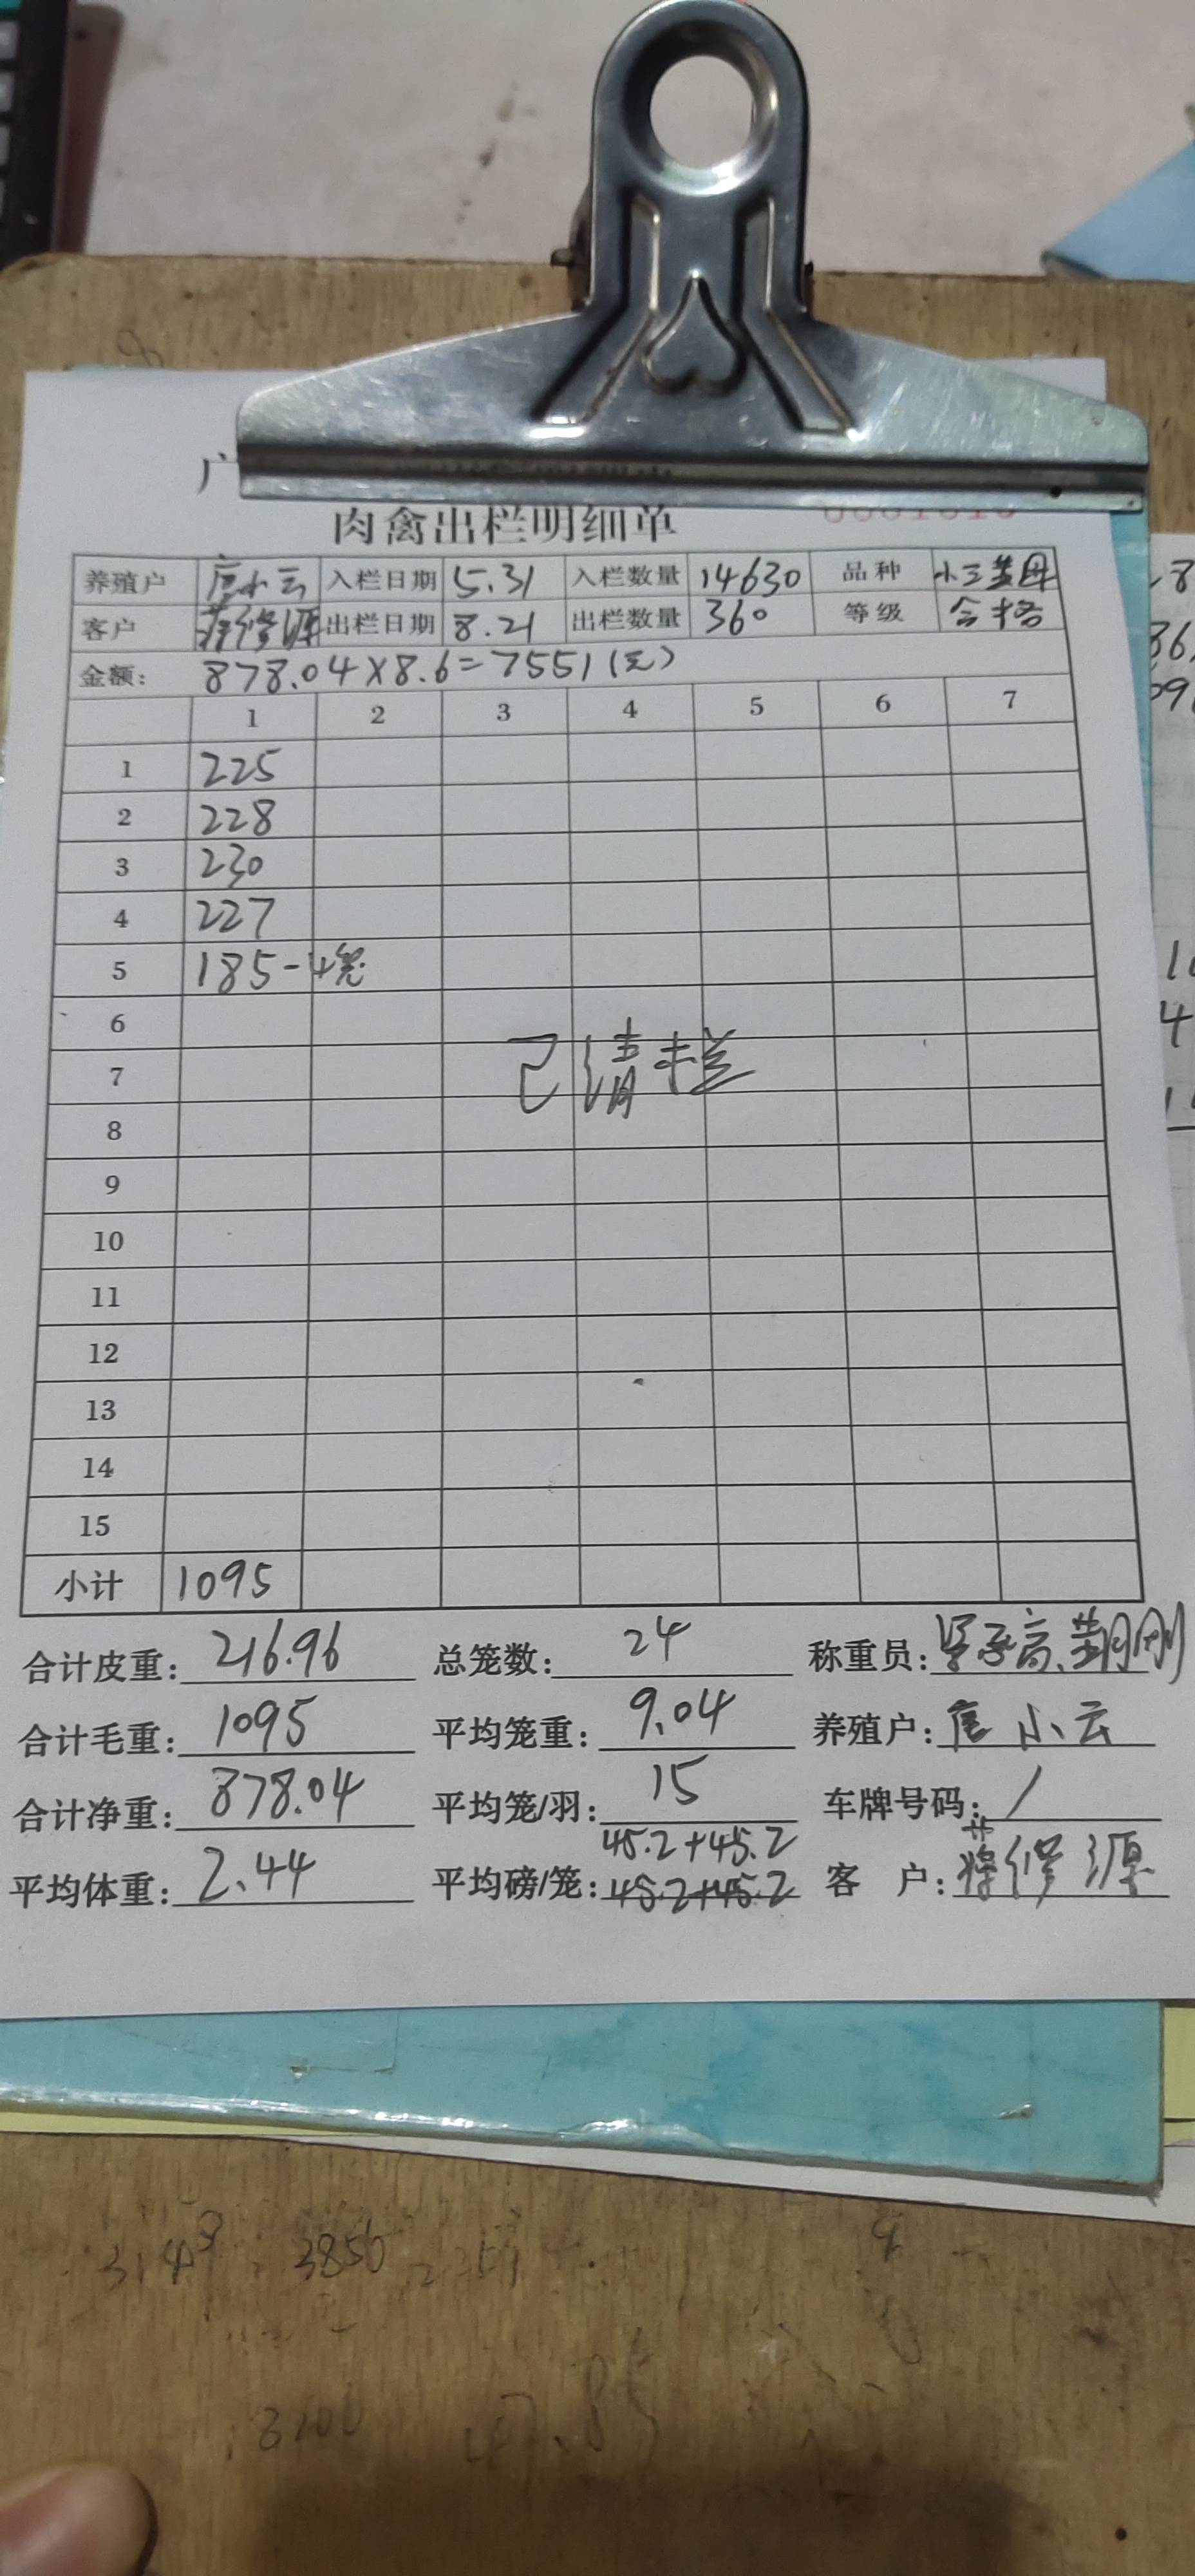 广
肉禽出栏明细单
养殖户 唐小云 入栏日期 5.31 入栏数量 14630 品种 小三黄母
客户 蒋修源 出栏日期 8.21 出栏数量 360 等级 合格
金额: 878.04×8.6=7551(元)
1 2 3 4 5 6 7
1 225
2 228
3 230
4 227
5 185-4笼
6
7 已清栏
8
9
10
11
12
13
14
15
小计 1095
合计皮重: 216.96 总笼数: 24 称重员:
合计毛重: 1095 平均笼重: 9.04 养殖户: 唐小云
合计净重: 878.04 平均笼/羽: 15 车牌号码: /
45.2+45.2
平均体重: 2.44 平均磅/笼: 45.2+45.2 客户: 蒋修源
3850